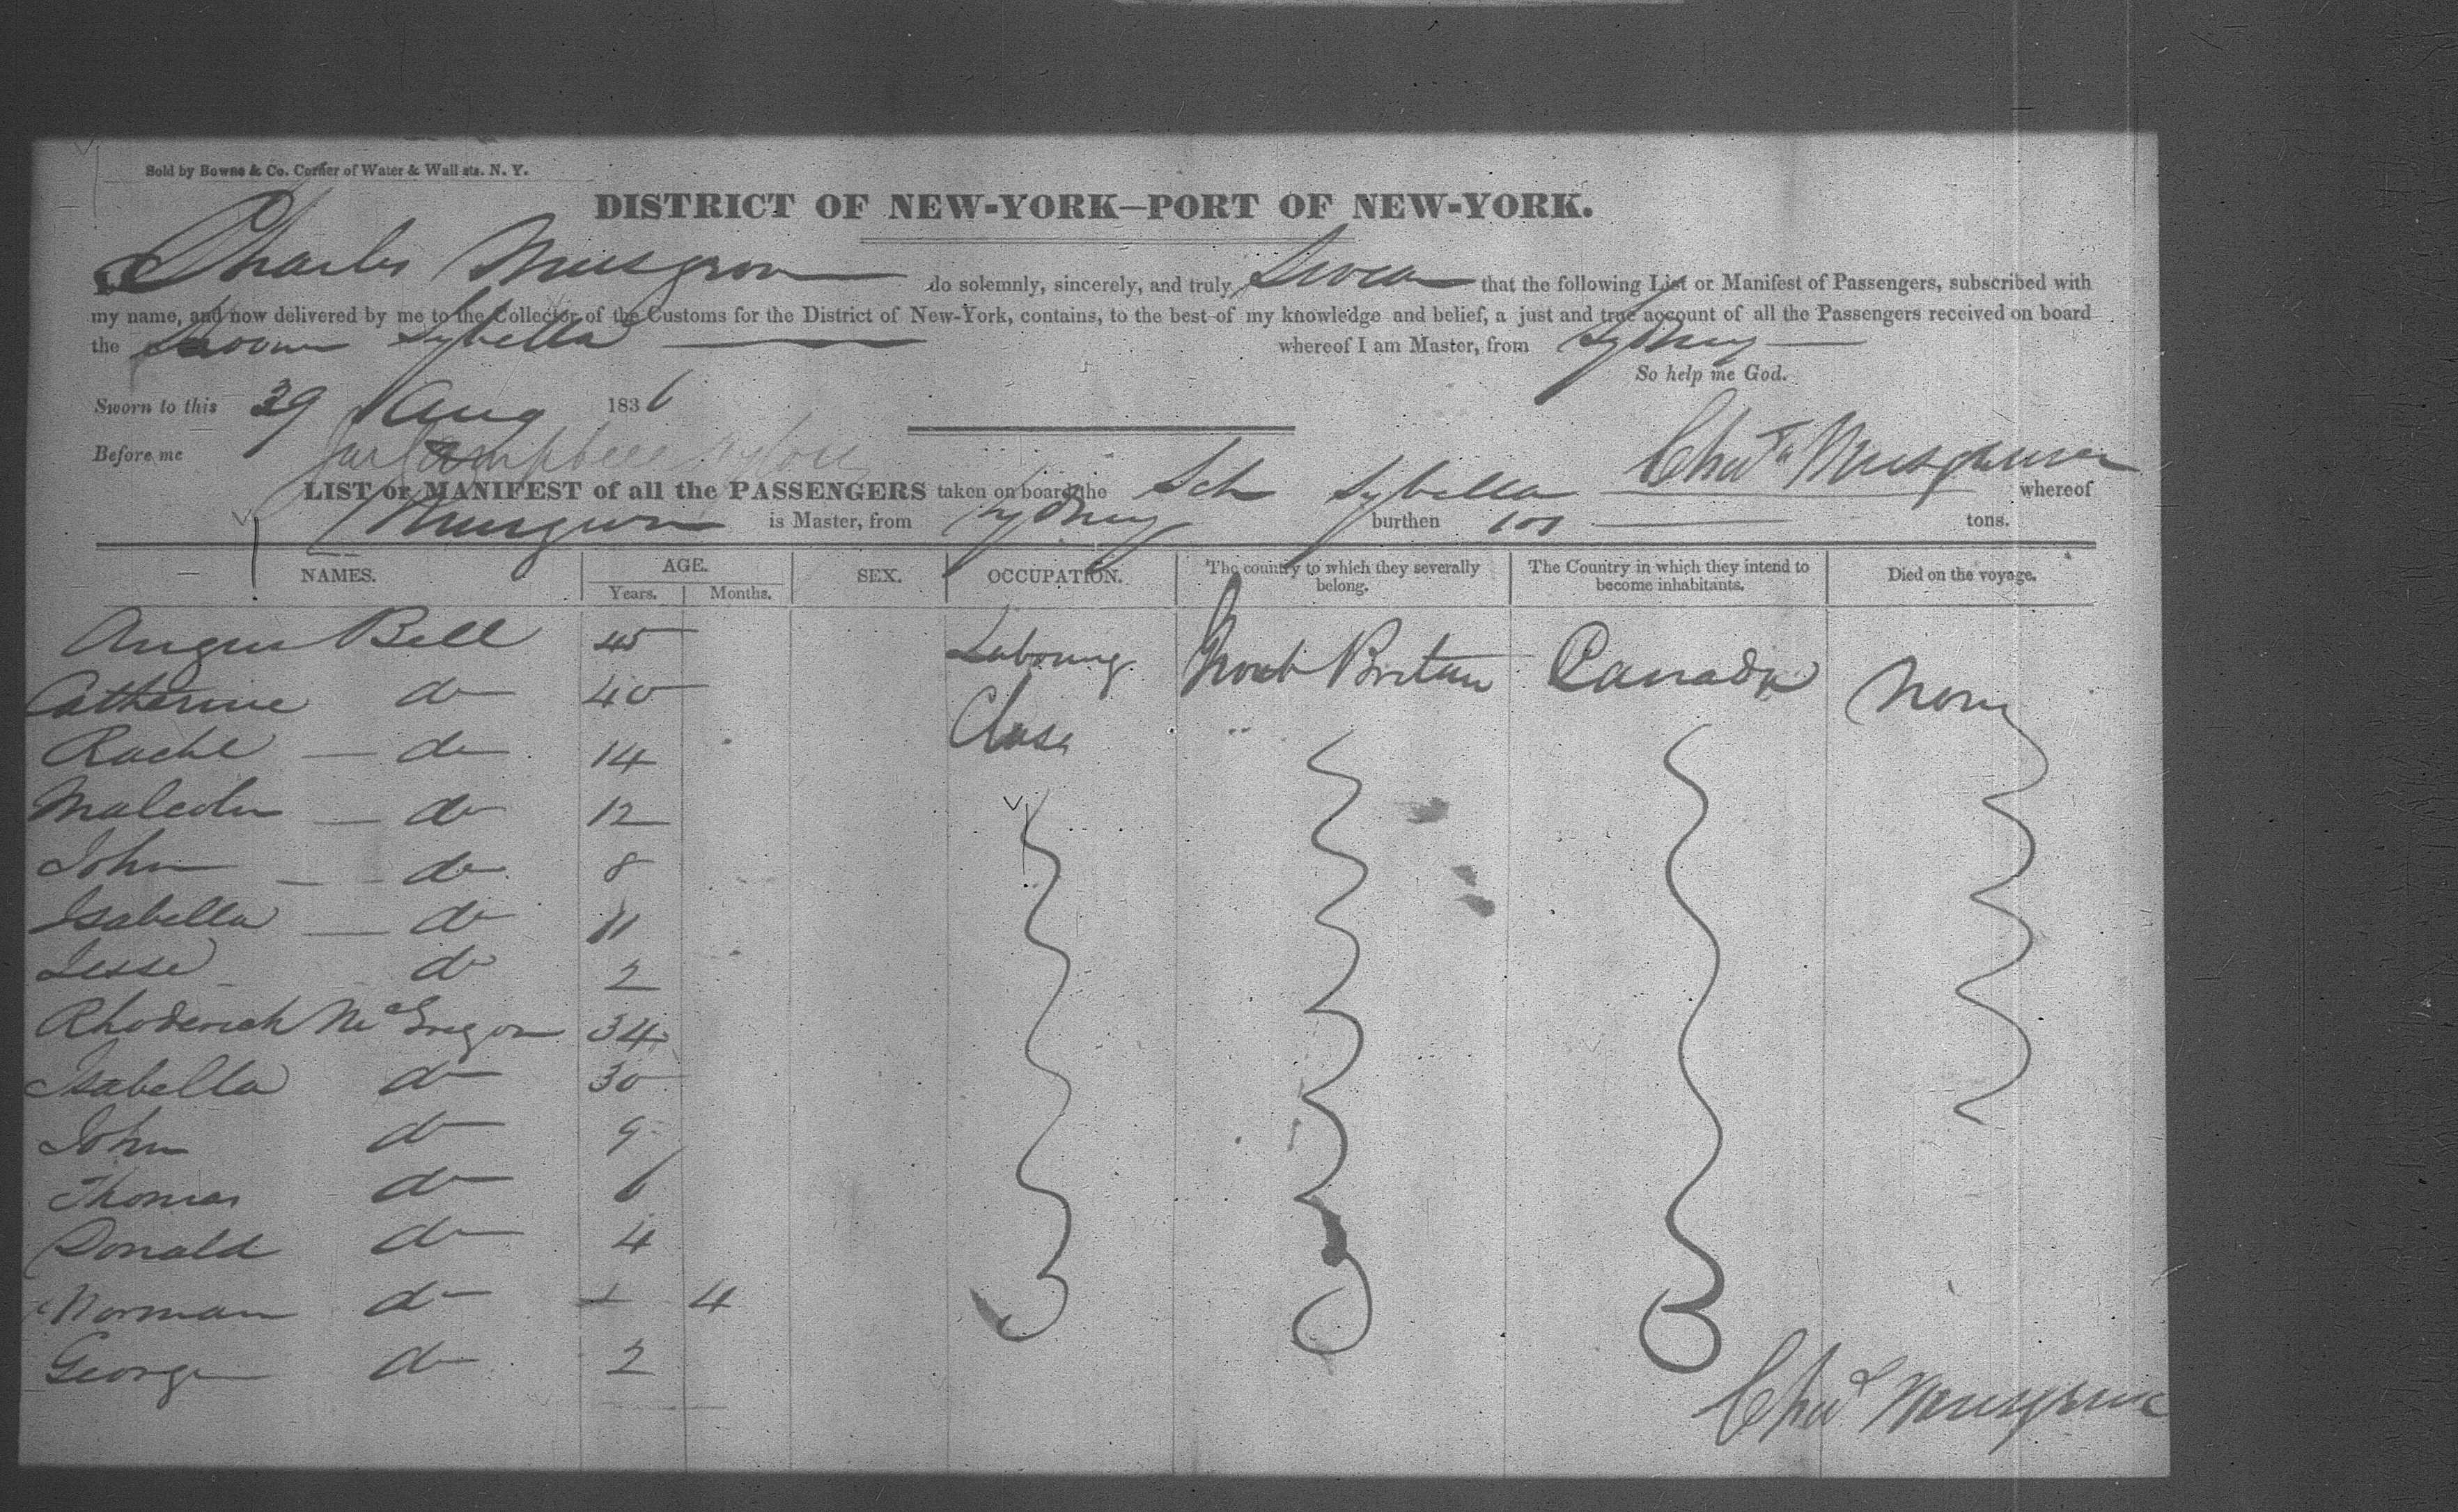 Sold by Bowne & Co. Corner of Water & Wall sts. N. Y.
DISTRICT OF NEW-YORK—PORT OF NEW-YORK.
I, Charles Musgrove do solemnly, sincerely, and truly Swear that the following List or Manifest of Passengers, subscribed with
my name, and now delivered by me to the Collector of the Customs for the District of New-York, contains, to the best of my knowledge and belief, a just and true account of all the Passengers received on board
the Schooner Sybella whereof I am Master, from Sydney
So help me God.
Sworn to this 29 Aug 1836
Before me Campbell Chas Musgrave
LIST or MANIFEST of all the PASSENGERS taken on board the Sch Sybella whereof
Musgrove is Master, from Sydney burthen 101 tons.
NAMES. AGE. Years. Months. SEX. OCCUPATION. The country to which they severally belong. The Country in which they intend to become inhabitants. Died on the voyage.
Angus Bell 45 Labouring North Britain Canada None
Catherine do 40 Class
Rachl do 14
Malcolm do 12
John do 8
Isabella do 11
Jesse do 2
Rhoderick McGregor 34
Isabella do 30
John do 9
Thomas do 6
Donald do 4
Norman do 4
George do 2
Chas Musgrave